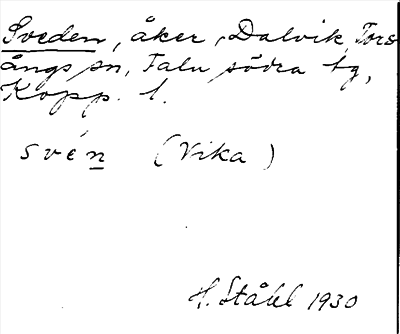 Sveden, åker, Dalvik, Tors-
ångs sn, Falu södra tg,
Kopp. l.
svén (Vika)
H. Ståhl 1930